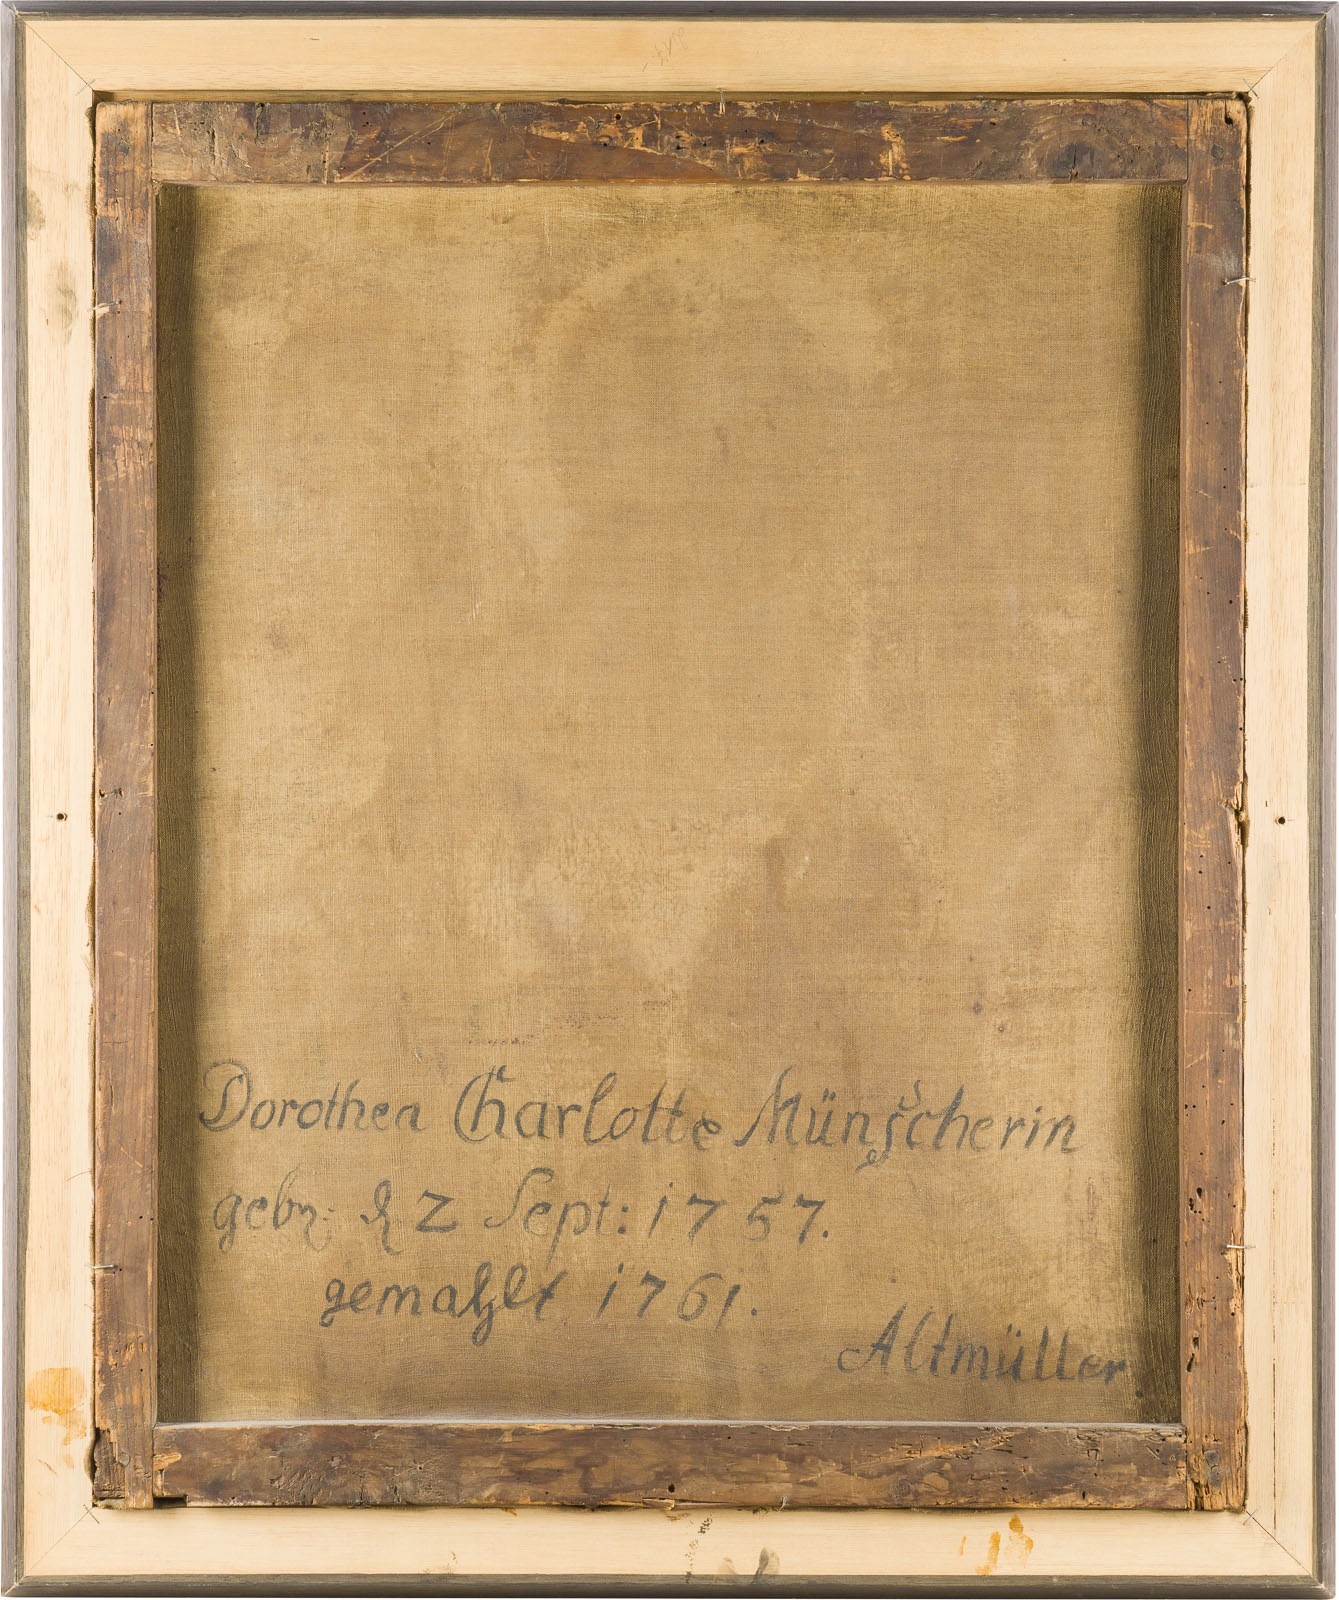 Dorothea Charlotte Münscherin
gebr: d 2 Sept: 1757.
gemahlt 1761.
Altmüller.